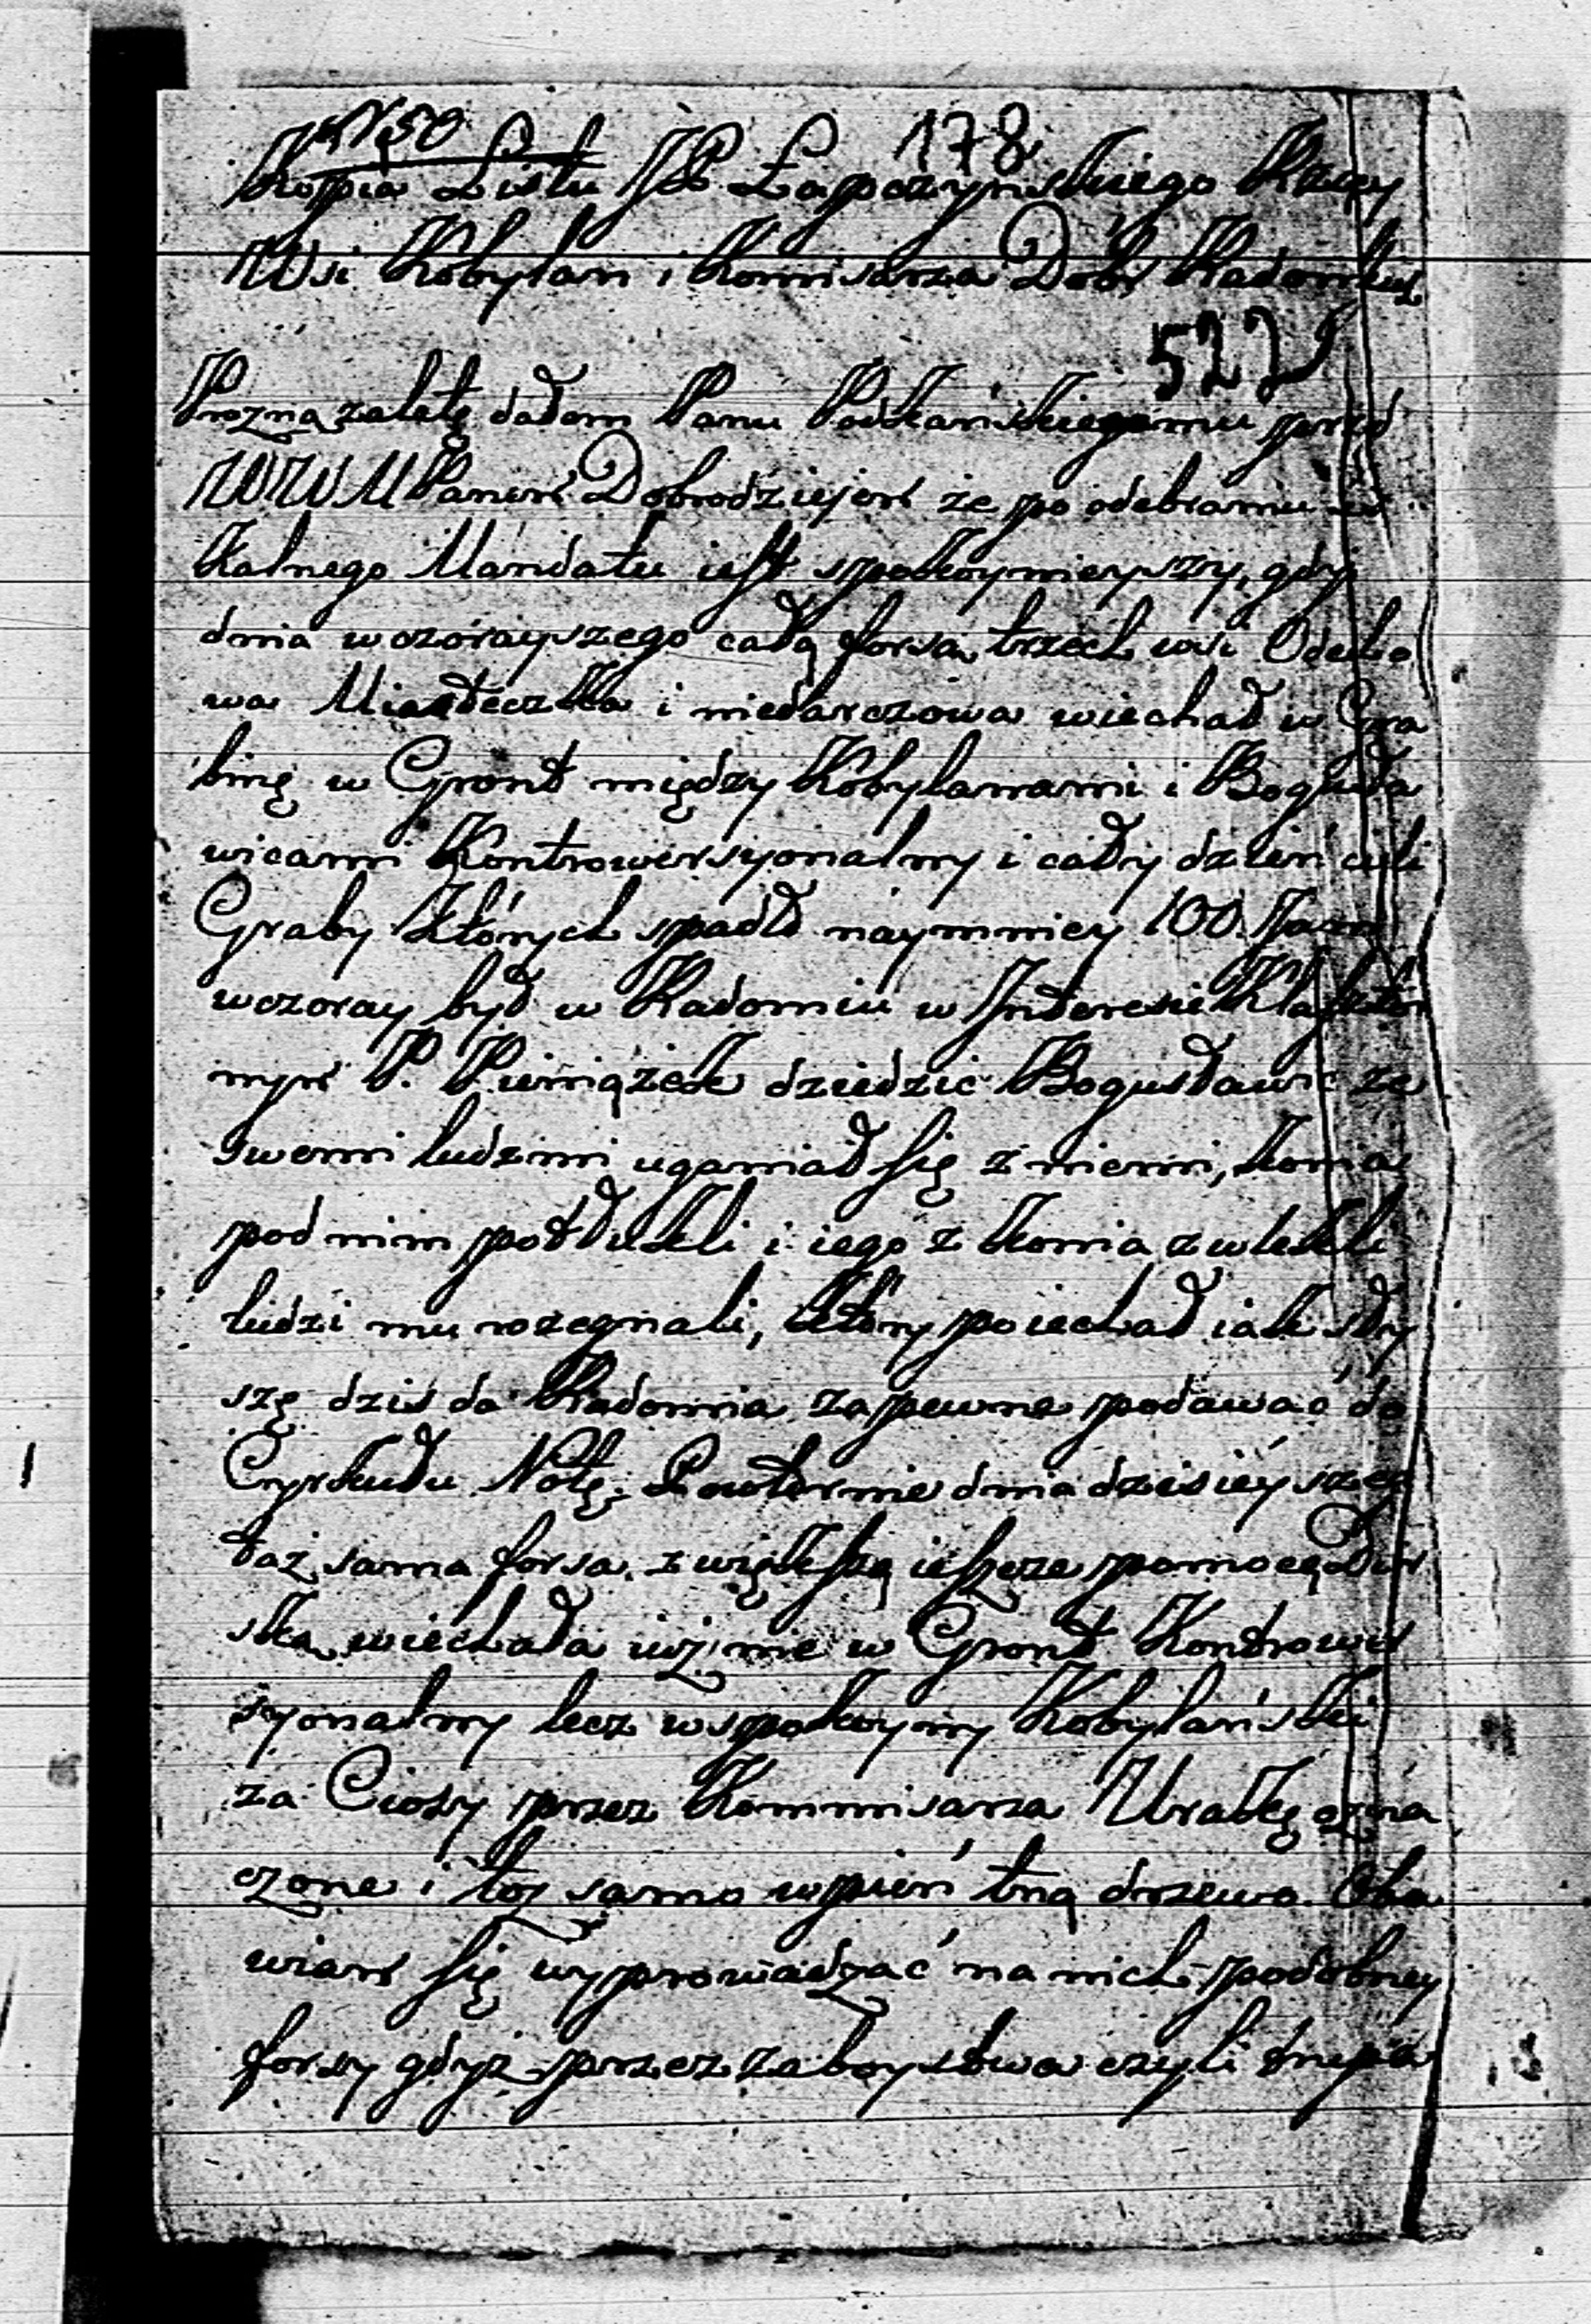 N 50 178
Kopia Listu JP Łapczyńskiego Rzcy
Wsi Kobylan i Komisarza Dóbr Radomskich
522
Prożną zaletę dałem Panu Podkańskiegomu przed
WWMPanem Dobrodziejem że po odebraniu
kalnego Mandatu iest spokoynieyszy, gdy
dnia wczorayszego całą forsą trzech wsi Odecho
wa Miasteczka i niedarczowa wiechał w Gra
binę w Gront między Kobylanami i Bogusła
wicami Kontrowersyonalny i cały dzień cieli
Graby których spadło naymniey 100. Jam
wczoray był w Radomiu w Interesie Klasztor
nym P. Pieniążek dziedzic Bogusławic ze
swemi ludzmi uganiał się z niemi, konia
pod nim potłukli i iego z konia zwlekli
ludzi mu rozegnali, który poiechał iak sły
szę dziś do Radomia zapewne podawać do
Cyrkułu Notę. Powtornie dnia dzisieyszego
taż sama forsa z większą ieszcze pomocą Dwor
ską wiechała iuż nie w Gront Kontrower
syonalny lecz w spokoyny Kobylański
za Ciosy przez Kommisarza Uralkę ozna
czone i toż samo w pień tną drzewo. Oba
wiam się wyprowadzać na nich podobney
forsy gdyż przez zaboystwa czyli